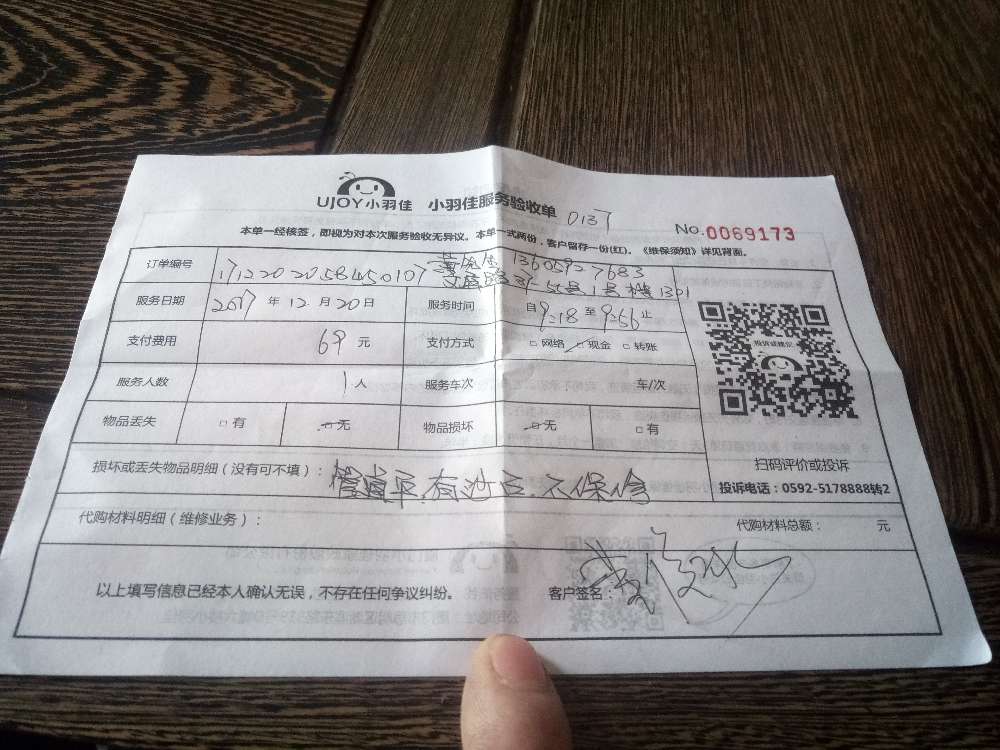 UJOY小羽佳 小羽佳服务验收单 0137
No.0069173
本单一经核签，即视为对本次服务验收无异议。本单一式两份，客户留存一份(红)。《维保须知》详见背面。
订单编号 1712202058450107 黄先生 13605927683
号 1号楼1301
服务日期 2017 年 12 月 20 日 服务时间 自 9:18 至 9:56 止
支付费用 69 元 支付方式 □网络 □现金 □转账
服务人数 1 人 服务车次 车/次
物品丢失 □有 □无 物品损坏 □无 □有
投诉或建议
扫码评价或投诉
投诉电话：0592-5178888转2
损坏或丢失物品明细（没有可不填）： 管道早有沙石.不保修
代购材料明细（维修业务）： 代购材料总额： 元
以上填写信息已经本人确认无误，不存在任何争议纠纷。 客户签名：